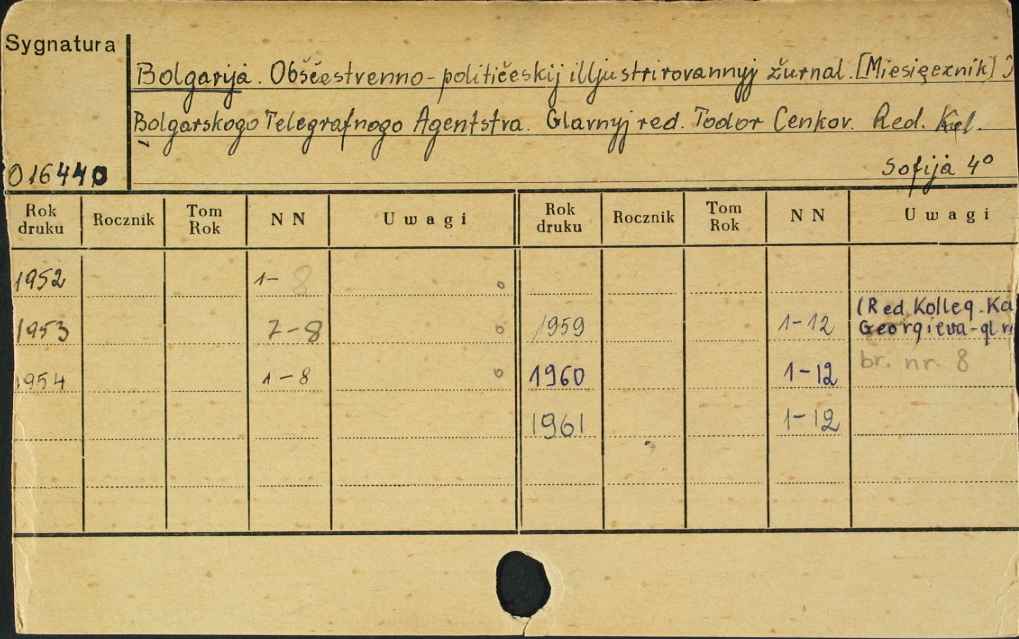 Sygnatura
Bolgarija. Obščestvenno-političeskij illjustrirovannyj žurnal. [Miesięcznik]
Bolgarskogo Telegrafnogo Agentstva. Glavnyj red. Todor Cenkov. Red.
016440 Sofija 4°
Rok druku Rocznik Tom Rok NN Uwagi Rok druku Rocznik Tom Rok NN Uwagi
1952 1-8
1953 7-8 1959 1-12 (Red. Kolleg. Ka
Georgieva-gl
1954 1-8 1960 1-12 br. nr. 8
1961 1-12